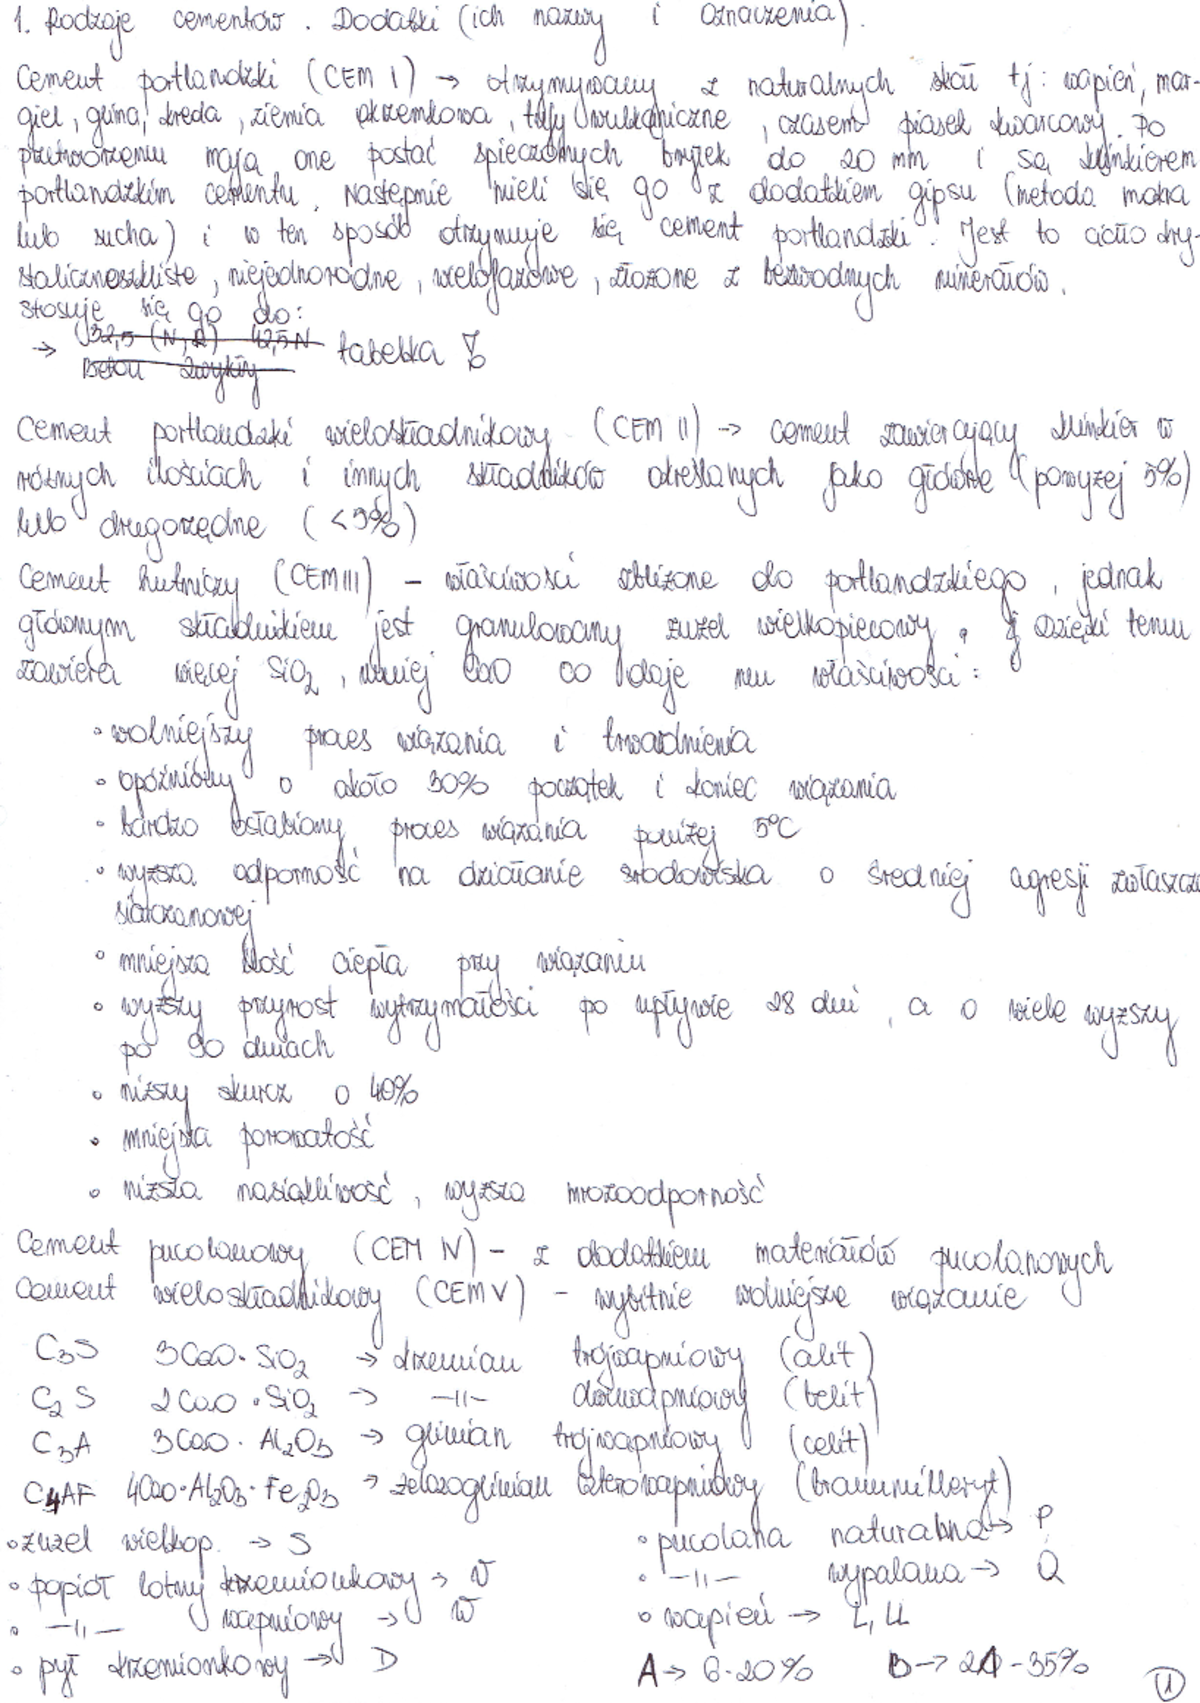 1. Rodzaje cementów. Dodatki (ich nazwy i oznaczenia).
Cement portlandzki (CEM I) → otrzymywany z naturalnych skał tj: wapień, mar-
giel, glina, kreda, ziemia okrzemkowa, tufy wulkaniczne, czasem piasek kwarcowy. Po
przetworzeniu mają one postać spieczonych bryłek do 20 mm i są klinkierem
portlandzkim cementu. Następnie mieli się go z dodatkiem gipsu (metoda mokra
lub sucha) i w ten sposób otrzymuje się cement portlandzki. Jest to ciało kry-
staliczneszkliste, niejednorodne, wielofazowe, złożone z bezwodnych minerałów.
Stosuje się go do:
→ 32,5 (N, R) 42,5N tabelka
beton zwykły
Cement portlandzki wieloskładnikowy (CEM II) → cement zawierający klinkier w
różnych ilościach i innych składników określanych jako główne (powyżej 5%)
lub drugorzędne (<5%)
Cement hutniczy (CEM III) - właściwości zbliżone do portlandzkiego, jednak
głównym składnikiem jest granulowany żużel wielkopiecowy. Dzięki temu
zawiera więcej SiO₂, mniej CaO co daje mu właściwości:
• wolniejszy proces wiązania i twardnienia
• opóźniony o około 30% początek i koniec wiązania
• bardzo osłabiony proces wiązania poniżej 5°C
• wyższa odporność na działanie środowiska o średniej agresji zwłaszcza
siarczanowej
• mniejsza ilość ciepła przy wiązaniu
• wyższy przyrost wytrzymałości po upływie 28 dni, a o wiele wyższy
po 90 dniach
• niższy skurcz o 40%
• mniejsza porowatość
• niższa nasiąkliwość, wyższa mrozoodporność
Cement pucolanowy (CEM IV) - z dodatkiem materiałów pucolanowych
Cement wieloskładnikowy (CEM V) - wybitnie wolniejsze wiązanie
C₃S 3CaO·SiO₂ → krzemian trójwapniowy (alit)
C₂S 2CaO·SiO₂ → -||- dwuwapniowy (belit)
C₃A 3CaO·Al₂O₃ → glinian trójwapniowy (celit)
C₄AF 4CaO·Al₂O₃·Fe₂O₃ → żelazoglinian czterowapniowy (braunmilleryt)
• żużel wielkop. → S
• popiół lotny krzemionkowy → V
• -||- wapniowy → W
• pył krzemionkowy → D
• pucolana naturalna → P
• -||- wypalana → Q
• wapień → L, LL
A → 6-20% B → 21-35%
1